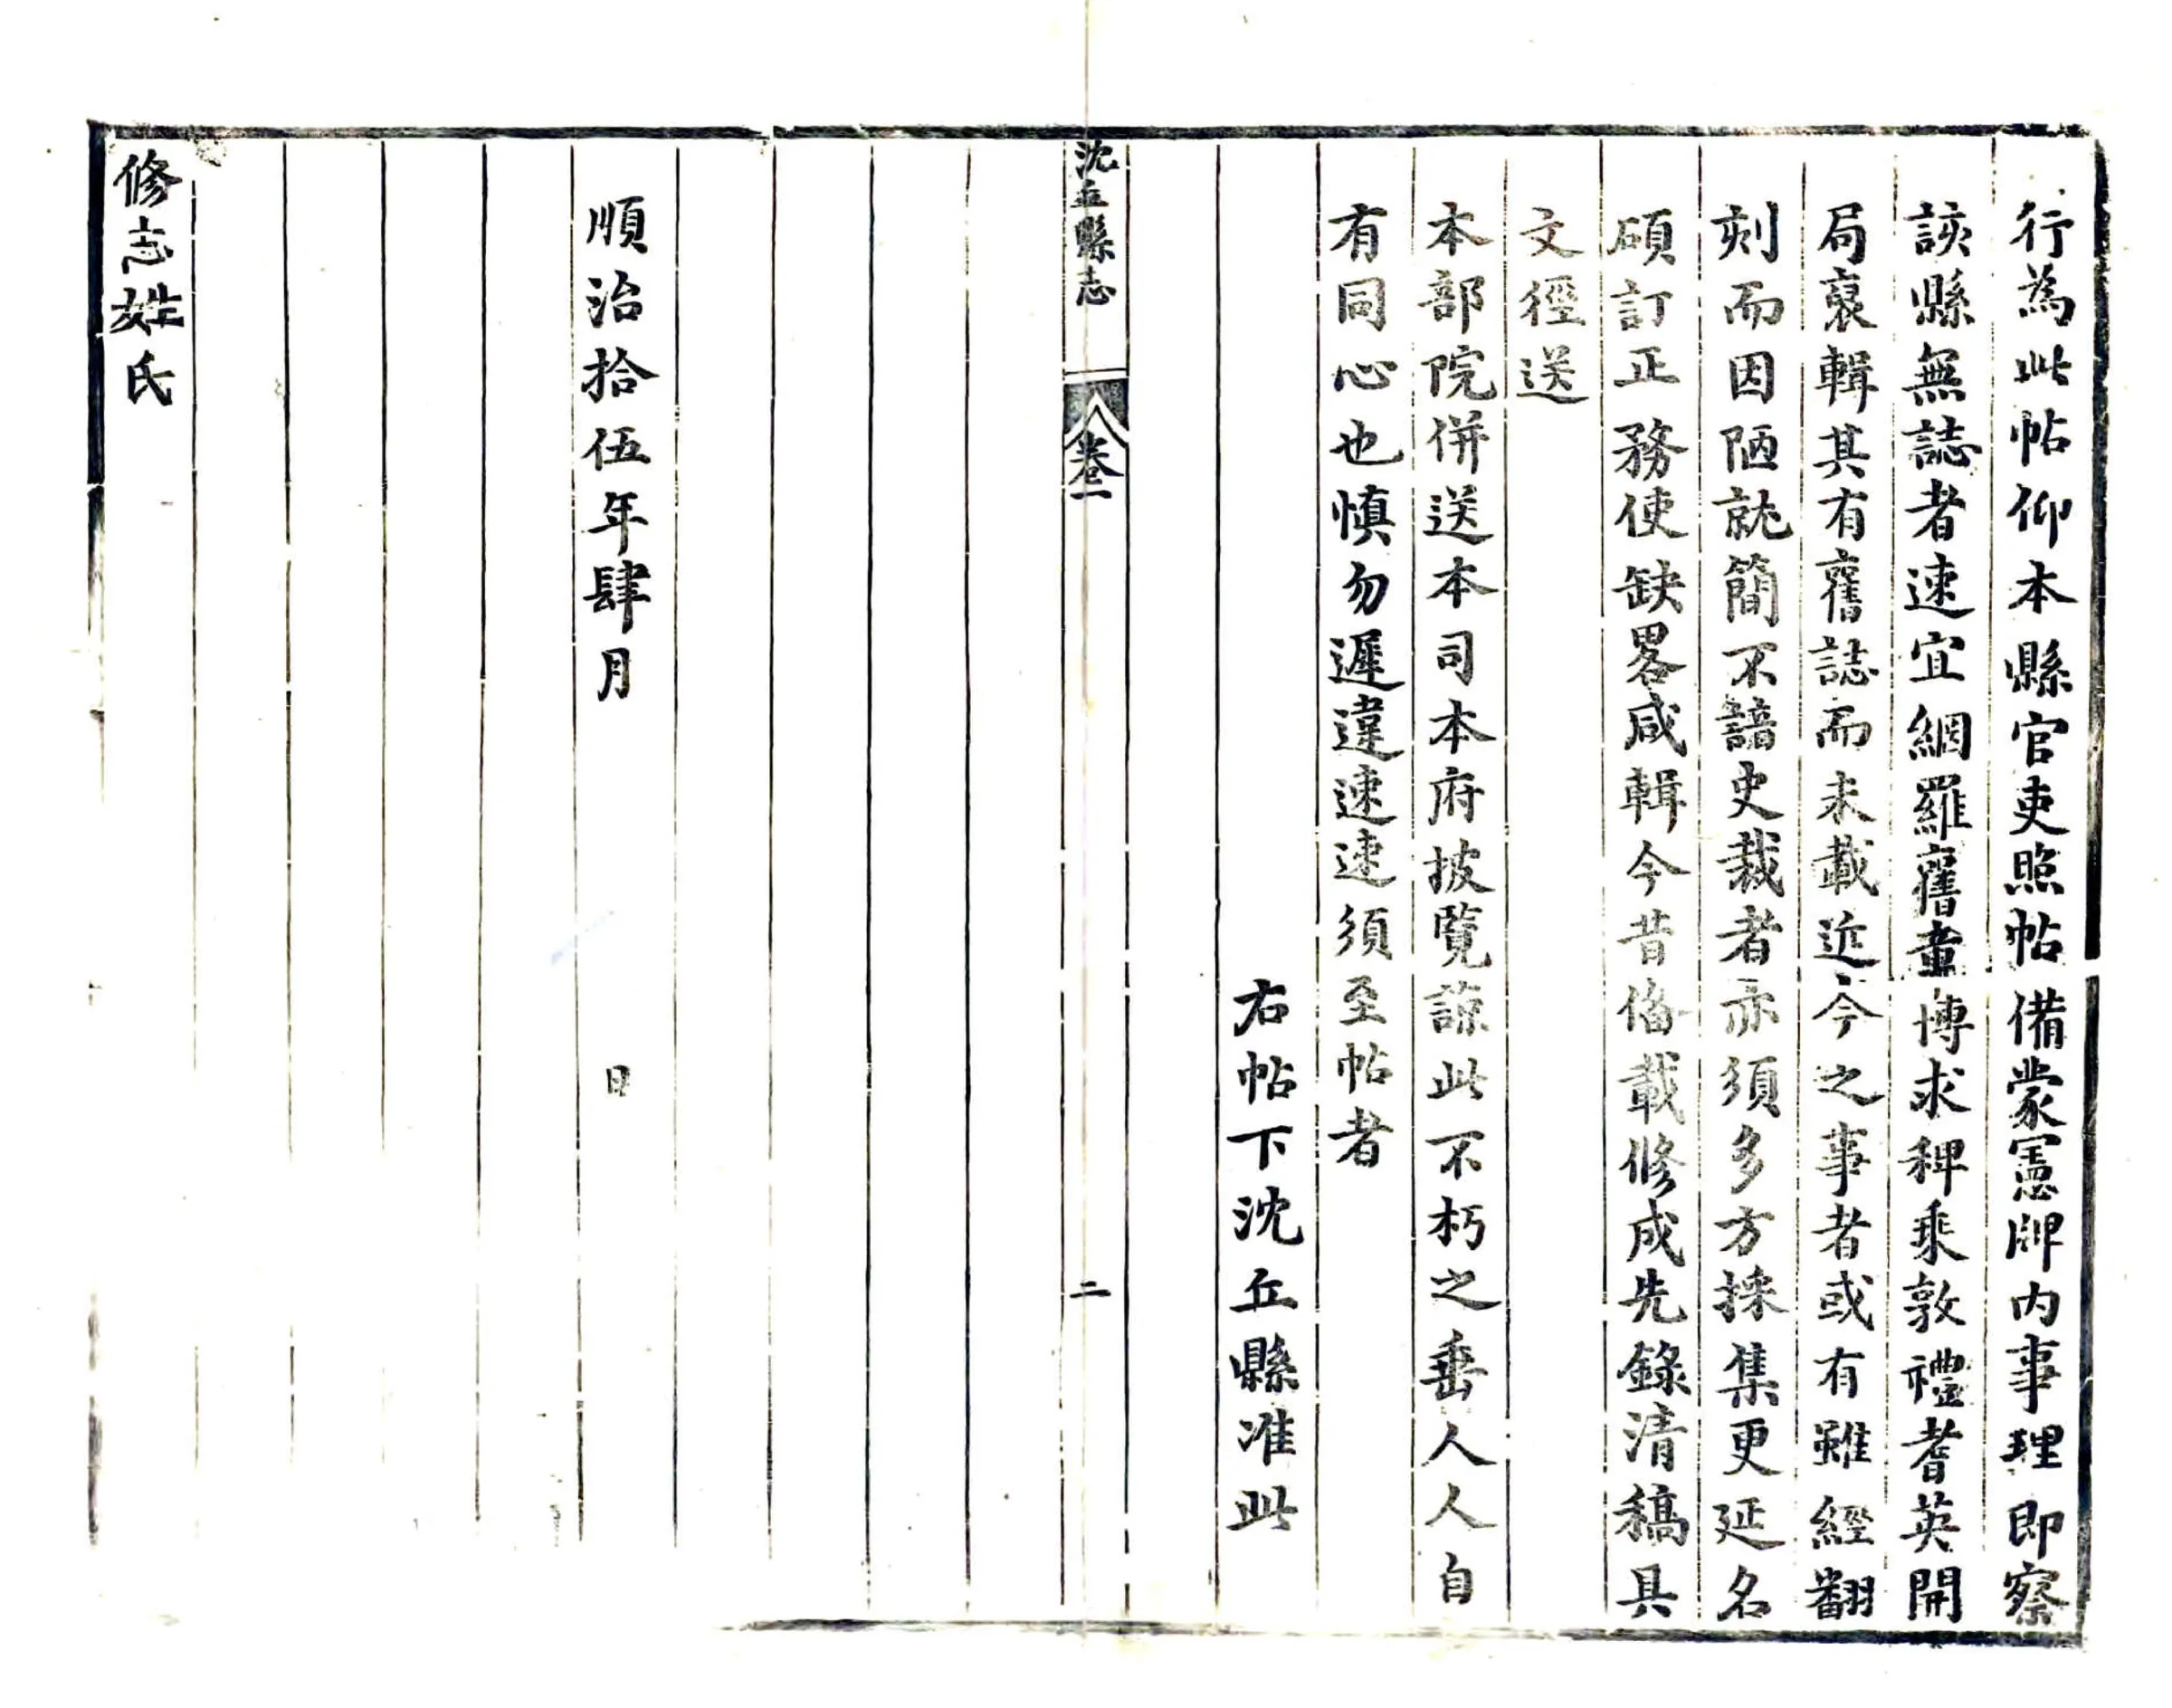 行為此帖仰本縣官吏照帖備蒙憲牌内事理即察
該縣無誌者速宜網羅舊畫博求稗乘敦禮耆英開
局裒輯其有舊誌而未載近今之事者或有雖經翻
刻而因陋就簡不諳史裁者亦須多方採集更延名
碩訂正務使缺畧咸輯今昔俻載修成先錄清稿具
文徑送
本部院併送本司本府披覽諒此不朽之垂人人自
有同心也慎勿遲違速速須至帖者
右帖下沈丘縣准此
沈丘縣志
卷一
二
順治拾伍年肆月 日
修志姓氏